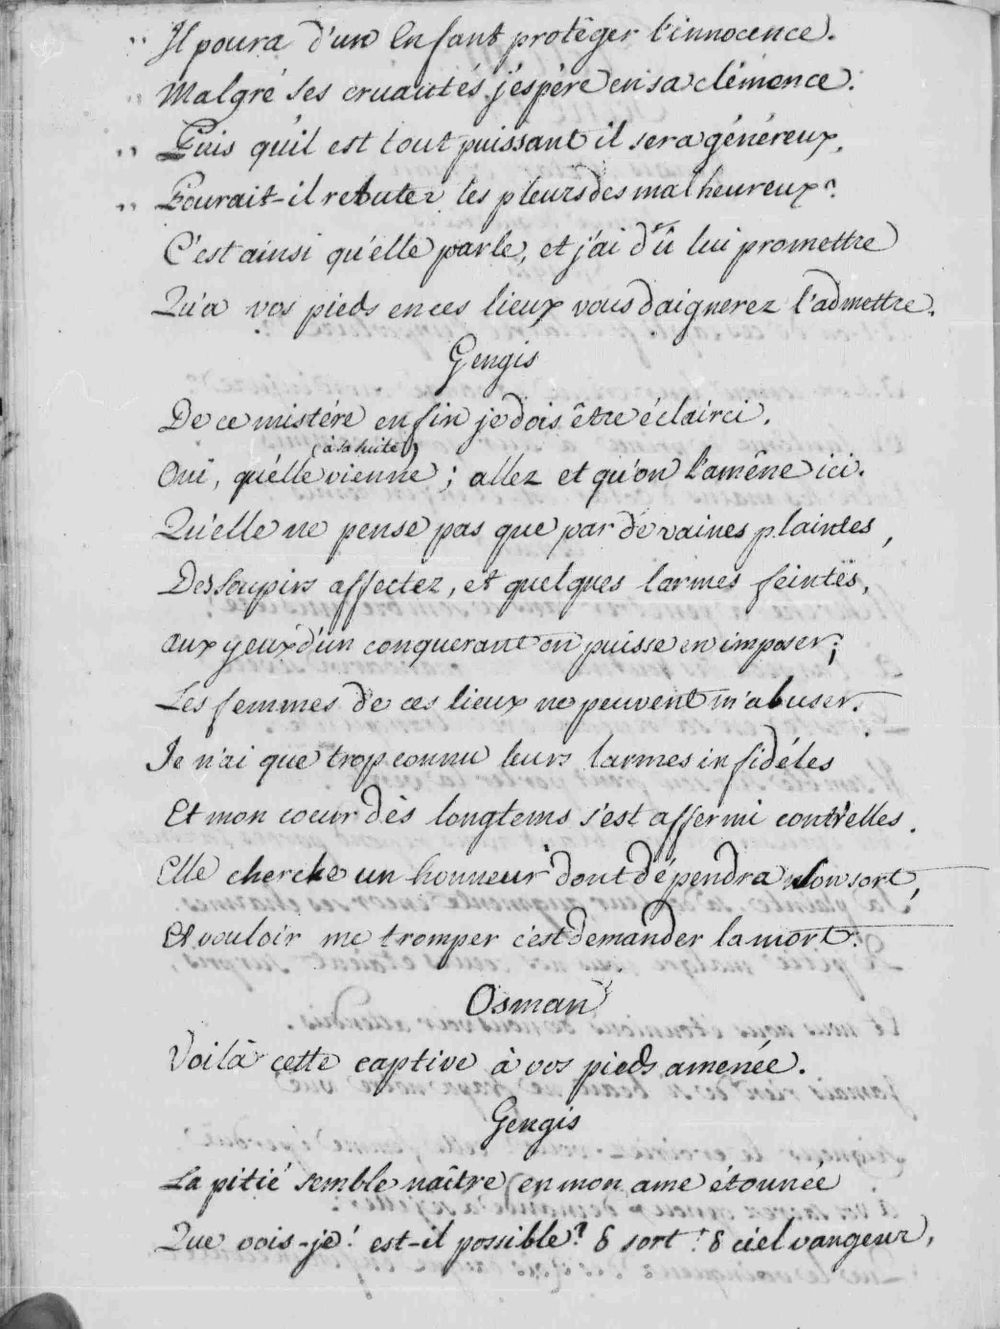 " Il poura d'un Enfant protéger l'innocence.
" Malgré ses cruautés j'éspère en sa clémence.
" Puis qu'il est tout puissant il sera généreux,
" Pourait-il rebuter les pleurs des malheureux?
C'est ainsi qu'elle parle, et j'ai dû lui promettre
Qu'a vos pieds en ces lieux vous daignerez l'admettre.
Gengis
De ce mistére enfin je dois être éclairci.
(à sa suite)
Oui, qu'elle vienne; allez et qu'on l'amêne ici.
Qu'elle ne pense pas que par de vaines plaintes,
Des soupirs affectez, et quelques larmes feintes,
aux yeux d'un conquerant on puisse en imposer;
Les femmes de ces lieux ne peuvent m'abuser.
Je n'ai que trop connu leurs larmes infidéles
Et mon coeur dès longtems s'est affermi contr'elles.
Elle cherche un honneur dont dépendra son sort,
Et vouloir me tromper c'est demander la mort.
Osman
Voilà cette captive à vos pieds amenée.
Gengis
La pitié semble naître en mon ame étonnée
Que vois-je! est-il possible? ô sort! ô ciel vangeur,